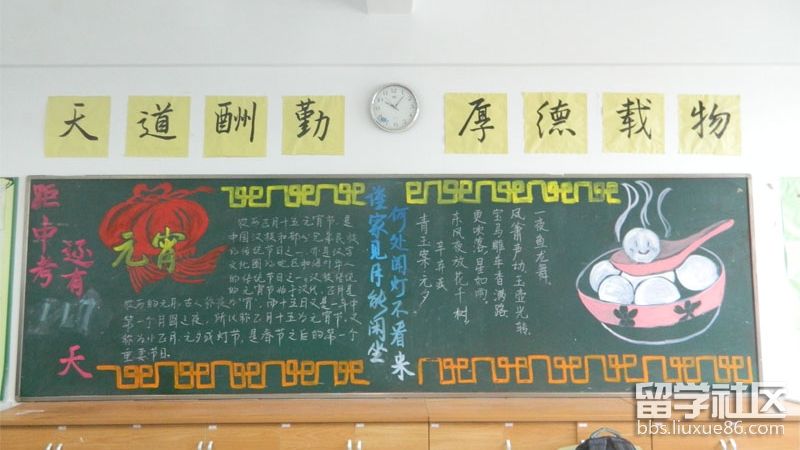 天道酬勤
厚德载物
距中考
还有
117
天
元宵
农历正月十五元宵节,是
中国汉族和部分兄弟民族
的传统节日之一,亦是汉字
文化圈的地区和海外华人
的传统节日之一。汉族传统
的元宵节始于汉代,正月是
农历的元月,古人称夜为"宵",而十五日又是一年中
第一个月圆之夜,所以称正月十五为元宵节,又
称为小正月、元夕或灯节,是春节之后的第一个
重要节日。
谁家见月能闲坐
何处闻灯不看来
青玉案·元夕
辛弃疾
东风夜放花千树
更吹落星如雨。
宝马雕车香满路
凤箫声动,玉壶光转,
一夜鱼龙舞。
留学社区
bbs.liuxue86.com